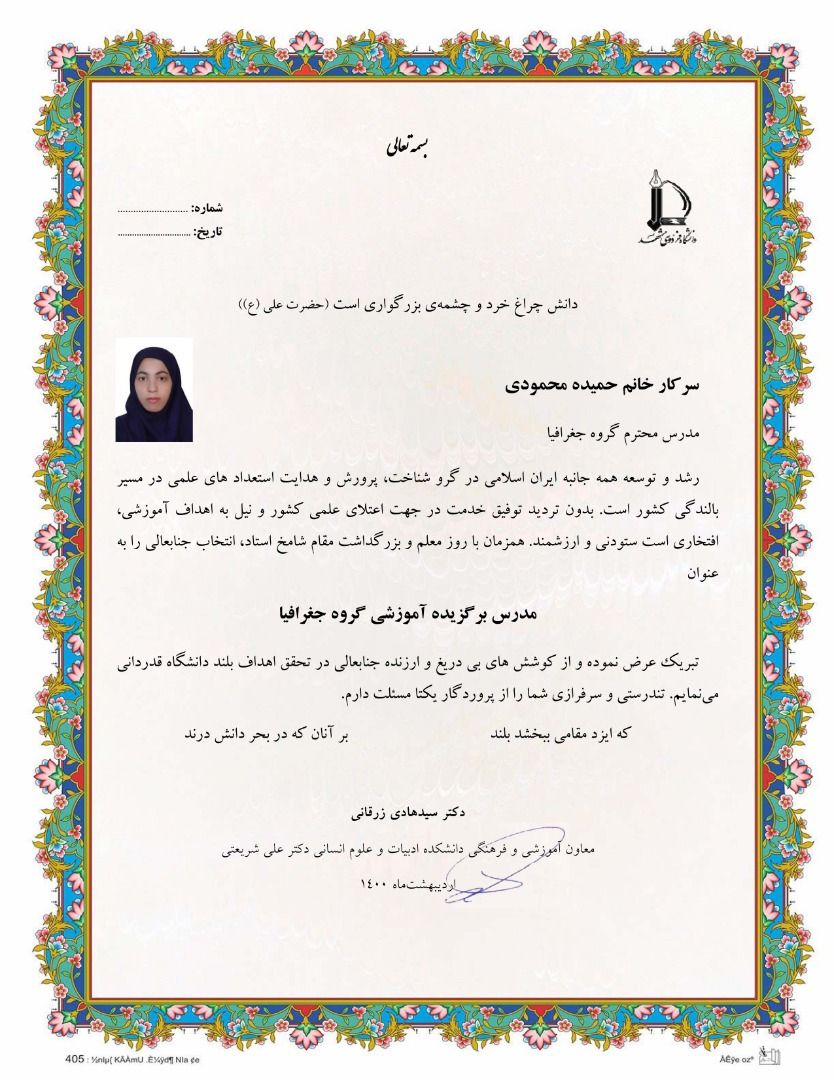 بسمه تعالی
دانشگاه فردوسی مشهد
شماره: ...........................
تاریخ: ............................
دانش چراغ خرد و چشمه‌ی بزرگواری است (حضرت علی (ع))
سرکار خانم حمیده محمودی
مدرس محترم گروه جغرافیا
رشد و توسعه همه جانبه ایران اسلامی در گرو شناخت، پرورش و هدایت استعداد های علمی در مسیر
بالندگی کشور است. بدون تردید توفیق خدمت در جهت اعتلای علمی کشور و نیل به اهداف آموزشی،
افتخاری است ستودنی و ارزشمند. همزمان با روز معلم و بزرگداشت مقام شامخ استاد، انتخاب جنابعالی را به
عنوان
مدرس برگزیده آموزشی گروه جغرافیا
تبریک عرض نموده و از کوشش های بی دریغ و ارزنده جنابعالی در تحقق اهداف بلند دانشگاه قدردانی
می‌نمایم. تندرستی و سرفرازی شما را از پروردگار یکتا مسئلت دارم.
که ایزد مقامی ببخشد بلند بر آنان که در بحر دانش درند
دکتر سیدهادی زرقانی
معاون آموزشی و فرهنگی دانشکده ادبیات و علوم انسانی دکتر علی شریعتی
اردیبهشت‌ماه ۱٤۰۰
405 : ½nIµ{ KÃÀmU .È¼ýd¶ NIa ¢e
ÀÊÿe oz°